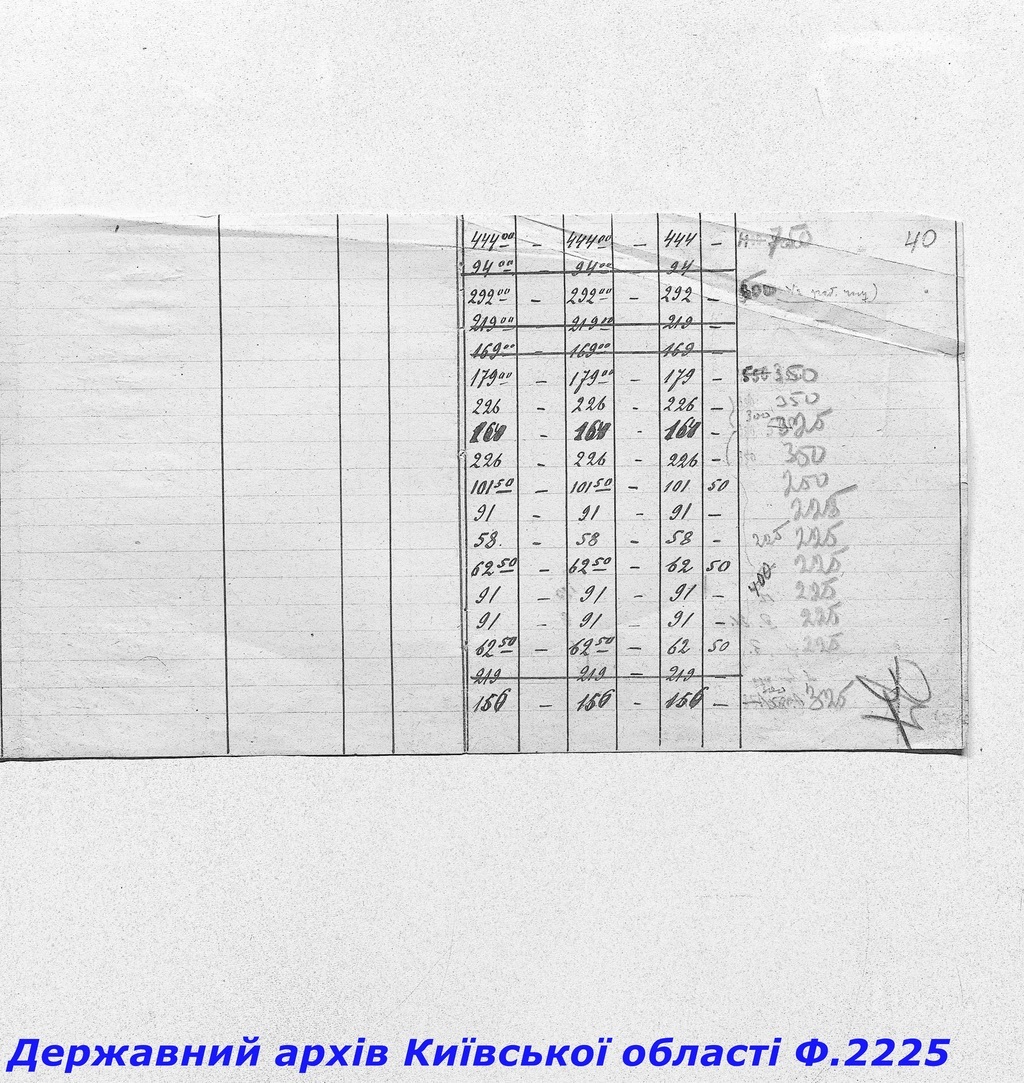 444⁰⁰ - 444⁰⁰ - 444 - 750 40
94⁰⁰ 94⁰⁰ 94
292⁰⁰ - 292⁰⁰ - 292 -
219⁰⁰ - 219⁰⁰ - 219 -
169⁰⁰ - 169⁰⁰ - 169 -
179⁰⁰ - 179⁰⁰ - 179 - 550 350
226 - 226 - 226 - 350
160 - 160 - 160 - 300 325
226 - 226 - 226 - 350
101⁵⁰ - 101⁵⁰ - 101 50 250
91 - 91 - 91 - 225
58 - 58 - 58 - 225 225
62⁵⁰ - 62⁵⁰ - 62 50 225
91 - 91 - 91 - 400 225
91 - 91 - 91 - 225
62⁵⁰ - 62⁵⁰ - 62 50 225
219 219 - 219 -
156 - 156 - 156 - 325
Державний архів Київської області Ф.2225